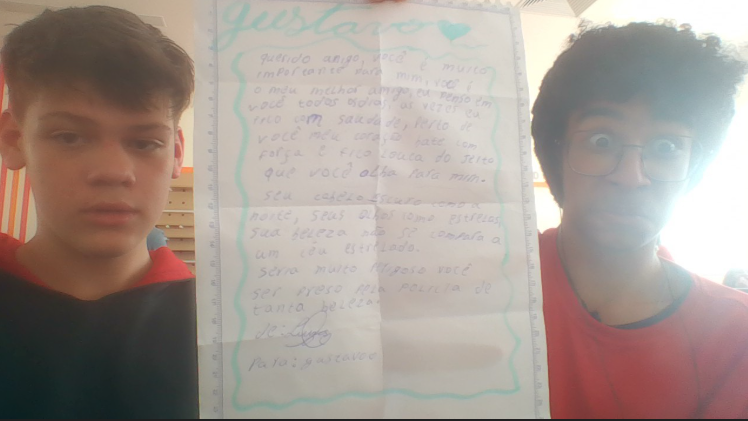 gustavo
querido amigo, você é muito
importante para mim, você é
o meu melhor amigo, eu penso em
você todos os dias, as vezes eu
fico com saudade, perto de
você meu coração bate com
força e fico louca do jeito
que você olha para mim.
seu cabelo escuro como a
noite, seus olhos como estrelas,
sua beleza não se compara a
um céu estrelado.
seria muito perigoso você
ser preso pela polícia de
tanta beleza.
de:
para: gustavo